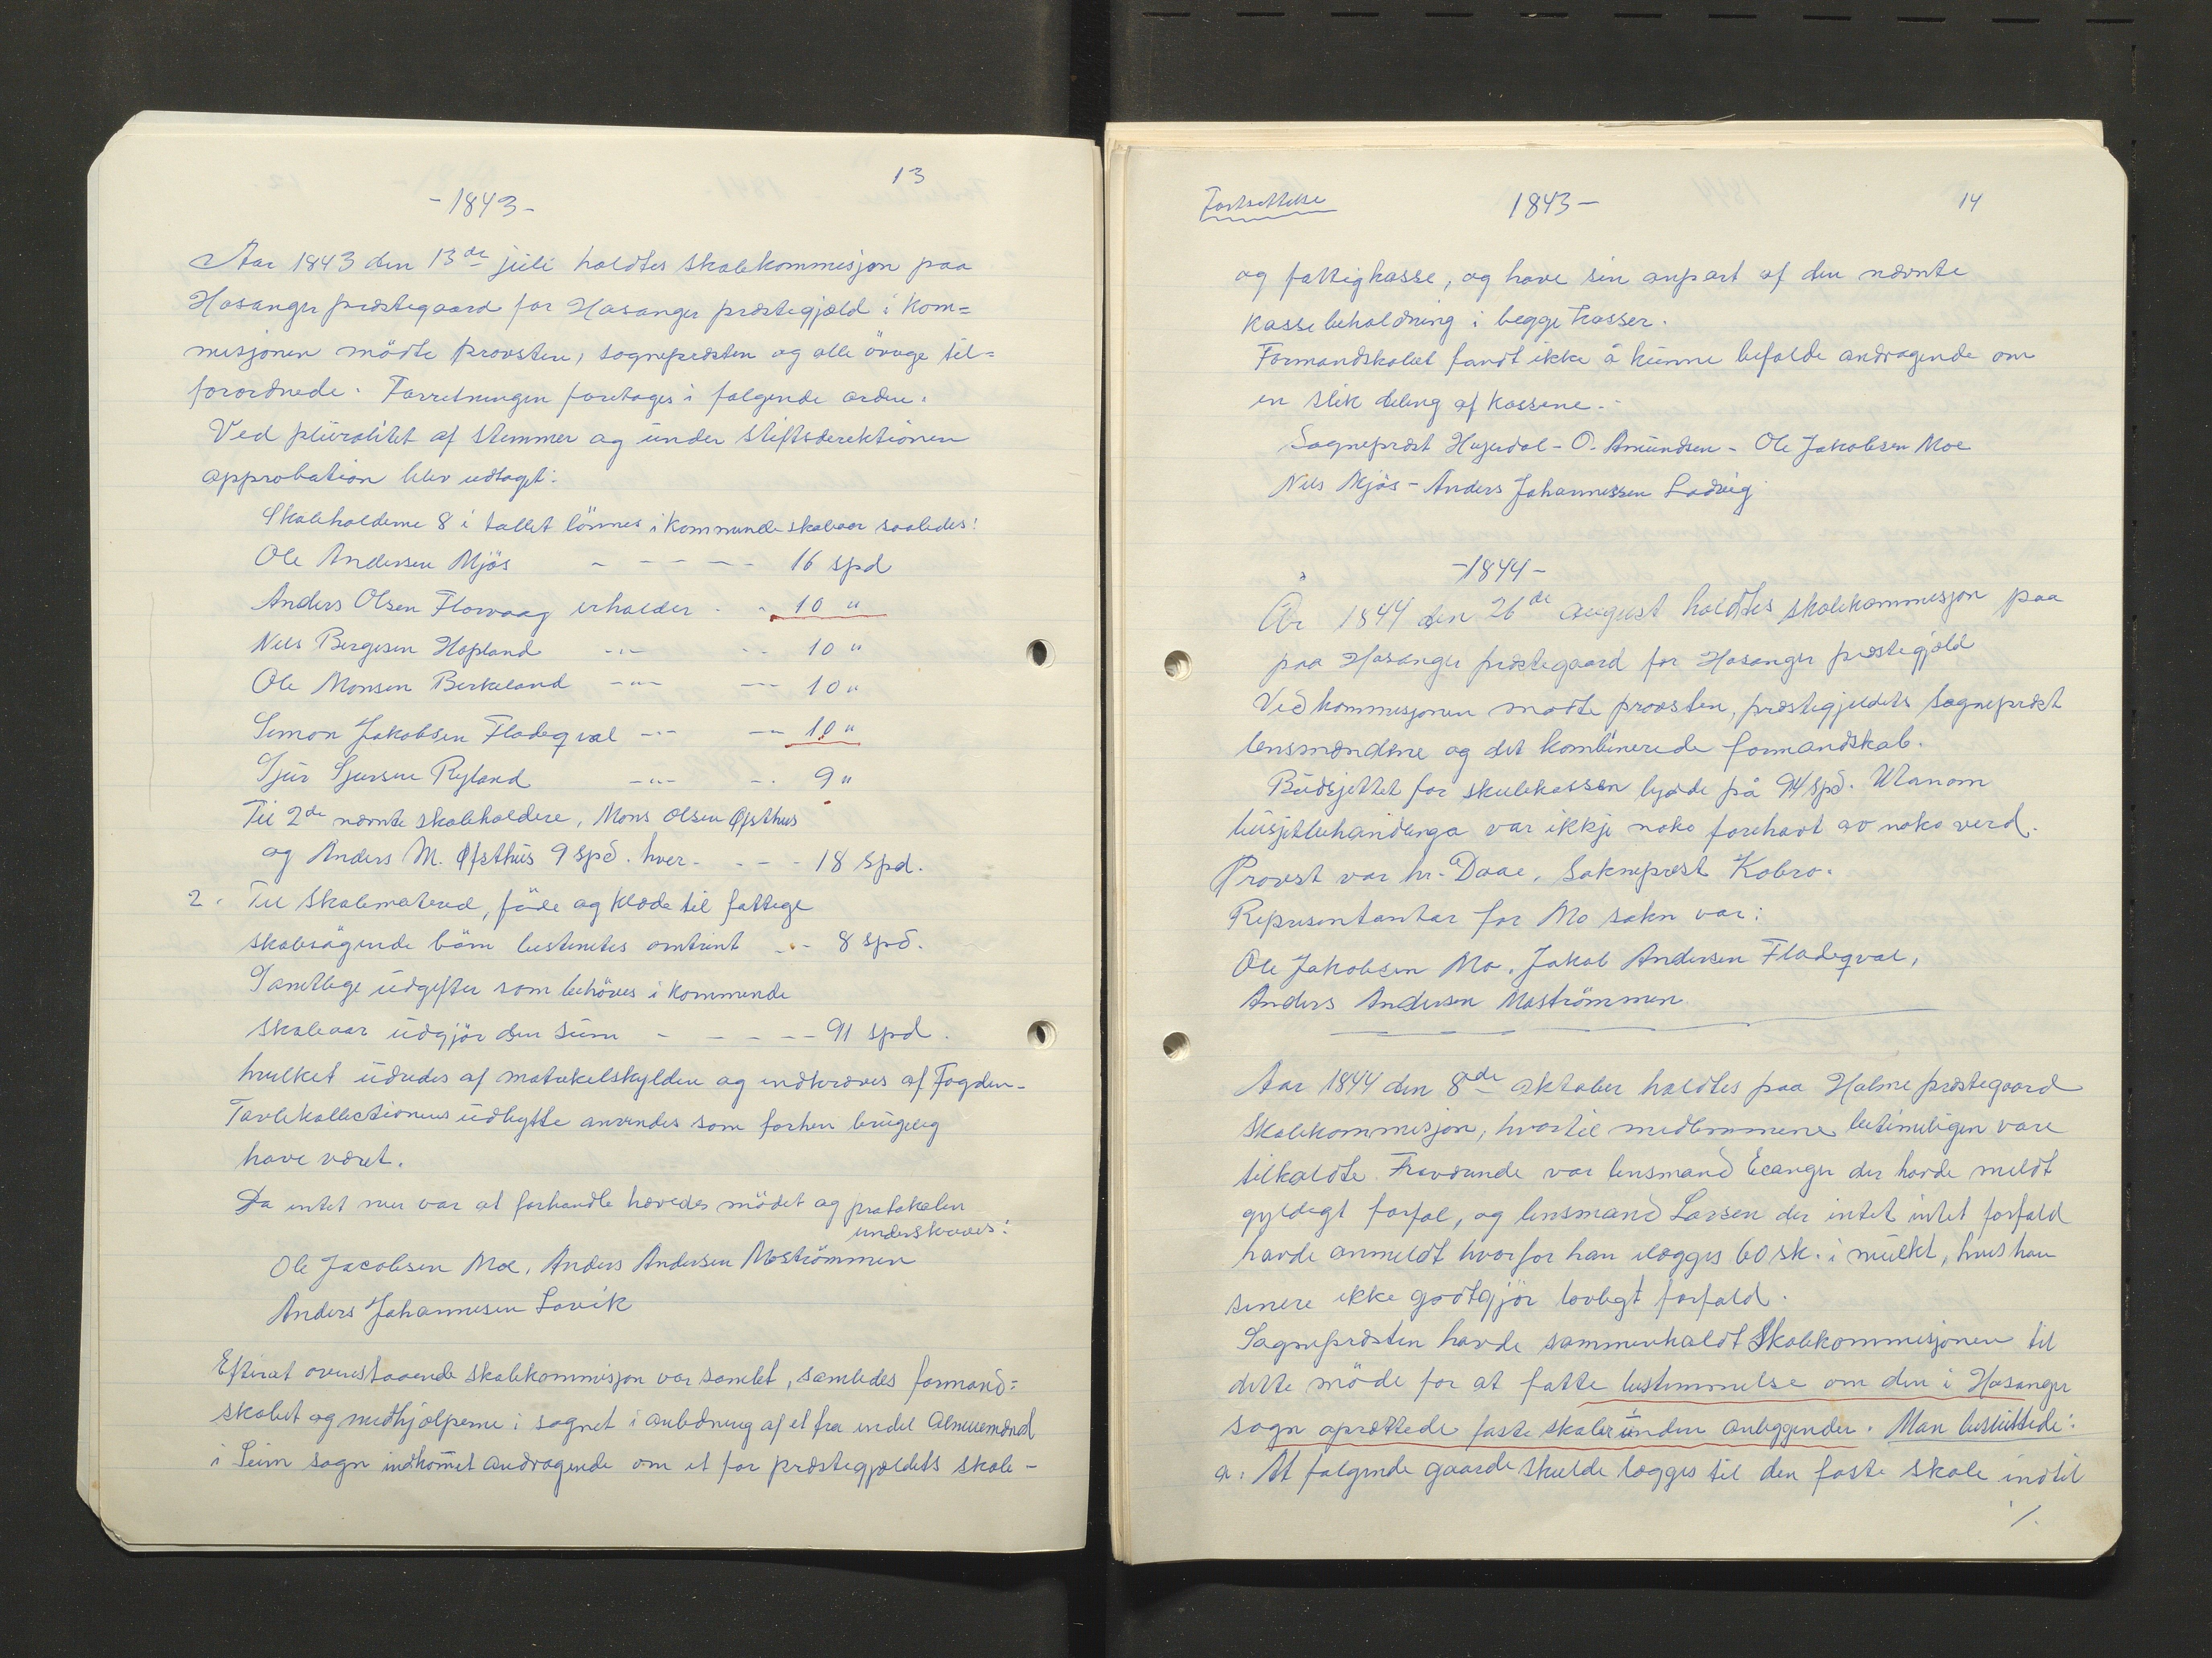 13
- 1843 -
Aar 1843 den 13de juli holdtes skolekommisjon paa
Hosanger præstegaard for Hosanger præstegjæld i kom=
misjonen mödte provsten, sognepræsten og alle övrige til=
forordnede. Forretningen foretoges i følgende orden.
Ved pluralitet af stemmer og under stiftsderektionen
approbation blev udtaget:
Skoleholderne 8 i tallet lönnes i kommende skoleaar saaledes:
Ole Andersen Mjös - - - - - 16 spd
Anders Olsen Florvaag erholder - - 10 "
Nils Bergesen Hopland -"- -- 10 "
Ole Monsen Birkeland -"- -- 10 "
Simon Jakobsen Fladeqval -"- -- 10 "
Sjur Sjursen Ryland -"- -- 9 "
Til 2de nævnte skoleholdere, Mons Olsen Øpsthus
og Anders M. Øpsthus 9 spd. hver - - - - 18 spd.
2. Til skolemateriel, föde og klæde til fattige
skolesögende börn bestemtes omtrent - - 8 spd.
Samtlige udgifter som behöves i kommende
skoleaar udgjör den sum - - - - - 91 spd.
hvilket udredes af matrikelskylden og indkræves af Fogden-
Tavlekollectionens udbytte anvendes som forhen brugelig
have været.
Da intet mer var at forhandle hævedes mödet og protokolen
underskreves:
Ole Jacobsen Moe, Anders Andersen Moströmmen
Anders Johannesen Lavik
Efterat ovenstaaende skolekommisjon var samlet, samledes formand=
skabet og medhjælperne i sognet i anledning af et fra endel Almuemænd
i Seim sogn indkommet andragende om et for præstegjældets skole-
Fortsettelse 1843 - 14
og fattigkasse, og have sin anpart af den nævnte
kassebeholdning i begge kasser.
Formandskabet fandt ikke å kunne befalde andragende om
en slik deling af kassene.-
Sogneprest Hysedal - O. Amundsen - Ole Jakobsen Moe
Nils Mjös - Anders Johannessen Ladvig
- 1844 -
År 1844 den 26de august holdtes skolekommesjon paa
paa Hosanger præstegaard for Hosanger præstegjæld
Ved kommesjonen mødte provsten, præstegjeldets sogneprest
lensmændene og det kombinerede formandskab.
Budsjettet for skulekassen lydde på 94 spd. Utanom
busjetbehandlinga var ikkje noko forehavt av noko verd.
Provst var hr. Daae, Sokneprest Kobro.
Representantar for Mo sokn var:
Ole Jakobsen Mo, Jakob Andersen Fladeqval,
Anders Andersen Moströmmen.
Aar 1844 den 8de oktober holdtes paa Holme præstegaard
skolekommisjon, hvortil medlemmene betimeligen vare
tilkaldte. Fraværende var lensmand Ecanger der havde meldt
gyldigt forfal, og lensmand Larsen der intet intet forfald
havde anmeldt hvorfor han ilægges 60 sk. i mulkt, hvis han
senere ikke godtgjör lovligt forfald.
Sogneprästen havde sammenkaldt Skolekommisjonen til
dette möde for at fatte bestemmelse om den i Hosanger
sogn oprettede faste skoler únden anleggender. Man besluttede:
a: At følgende gaarde skulde lægges til den faste skole indtil
/.